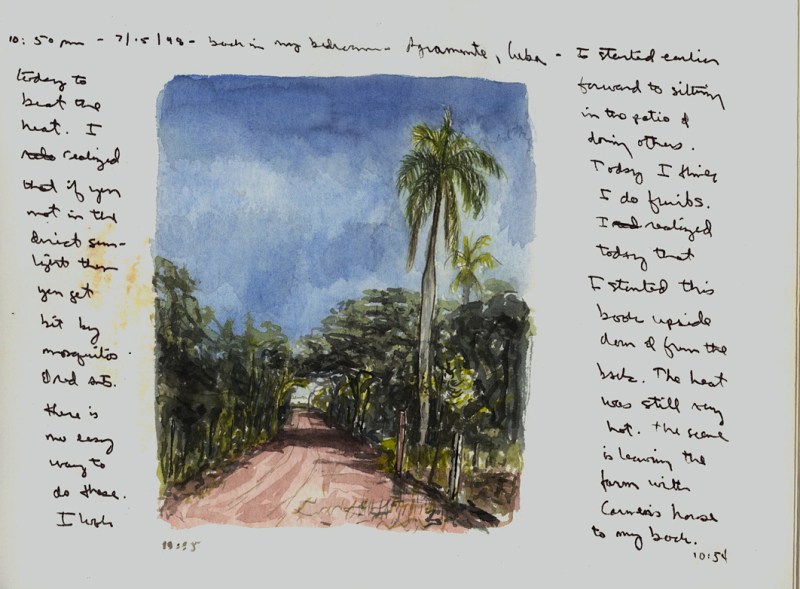 10:50 pm - 7/15/98 - back in my bedroom - Agramonte, Cuba - I started earlier
today to
beat the
heat. I
realized
that if you
not in the
direct sun-
light then
you get
bit by
mosquitos
& red ants.
there is
no easy
way to
do these.
I look
forward to sitting
in the patio &
doing others.
Today I think
I do fruits.
I realized
today that
I started this
book upside
down & from the
back. The heat
was still very
hot. the scene
is leaving the
farm with
house
to my back.
10:54